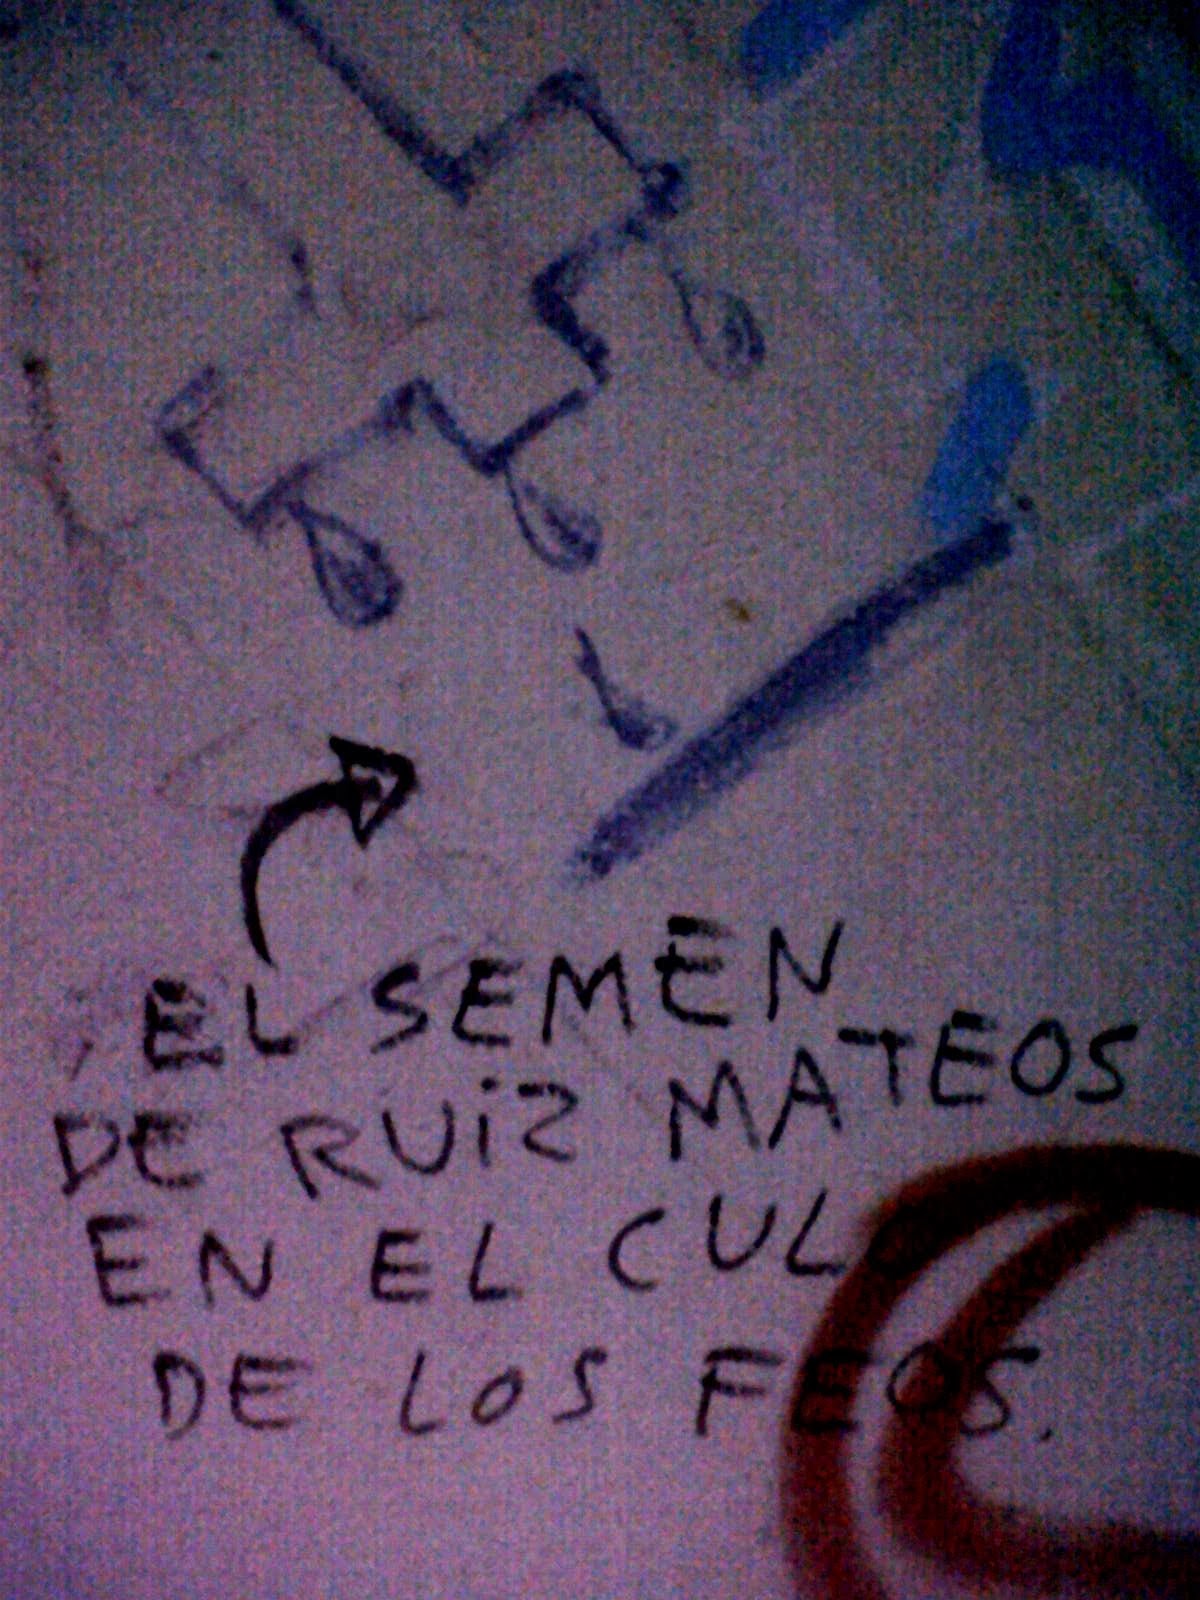 EL SEMEN
DE RUiZ MATEOS
EN EL CULO
DE LOS FEOS.